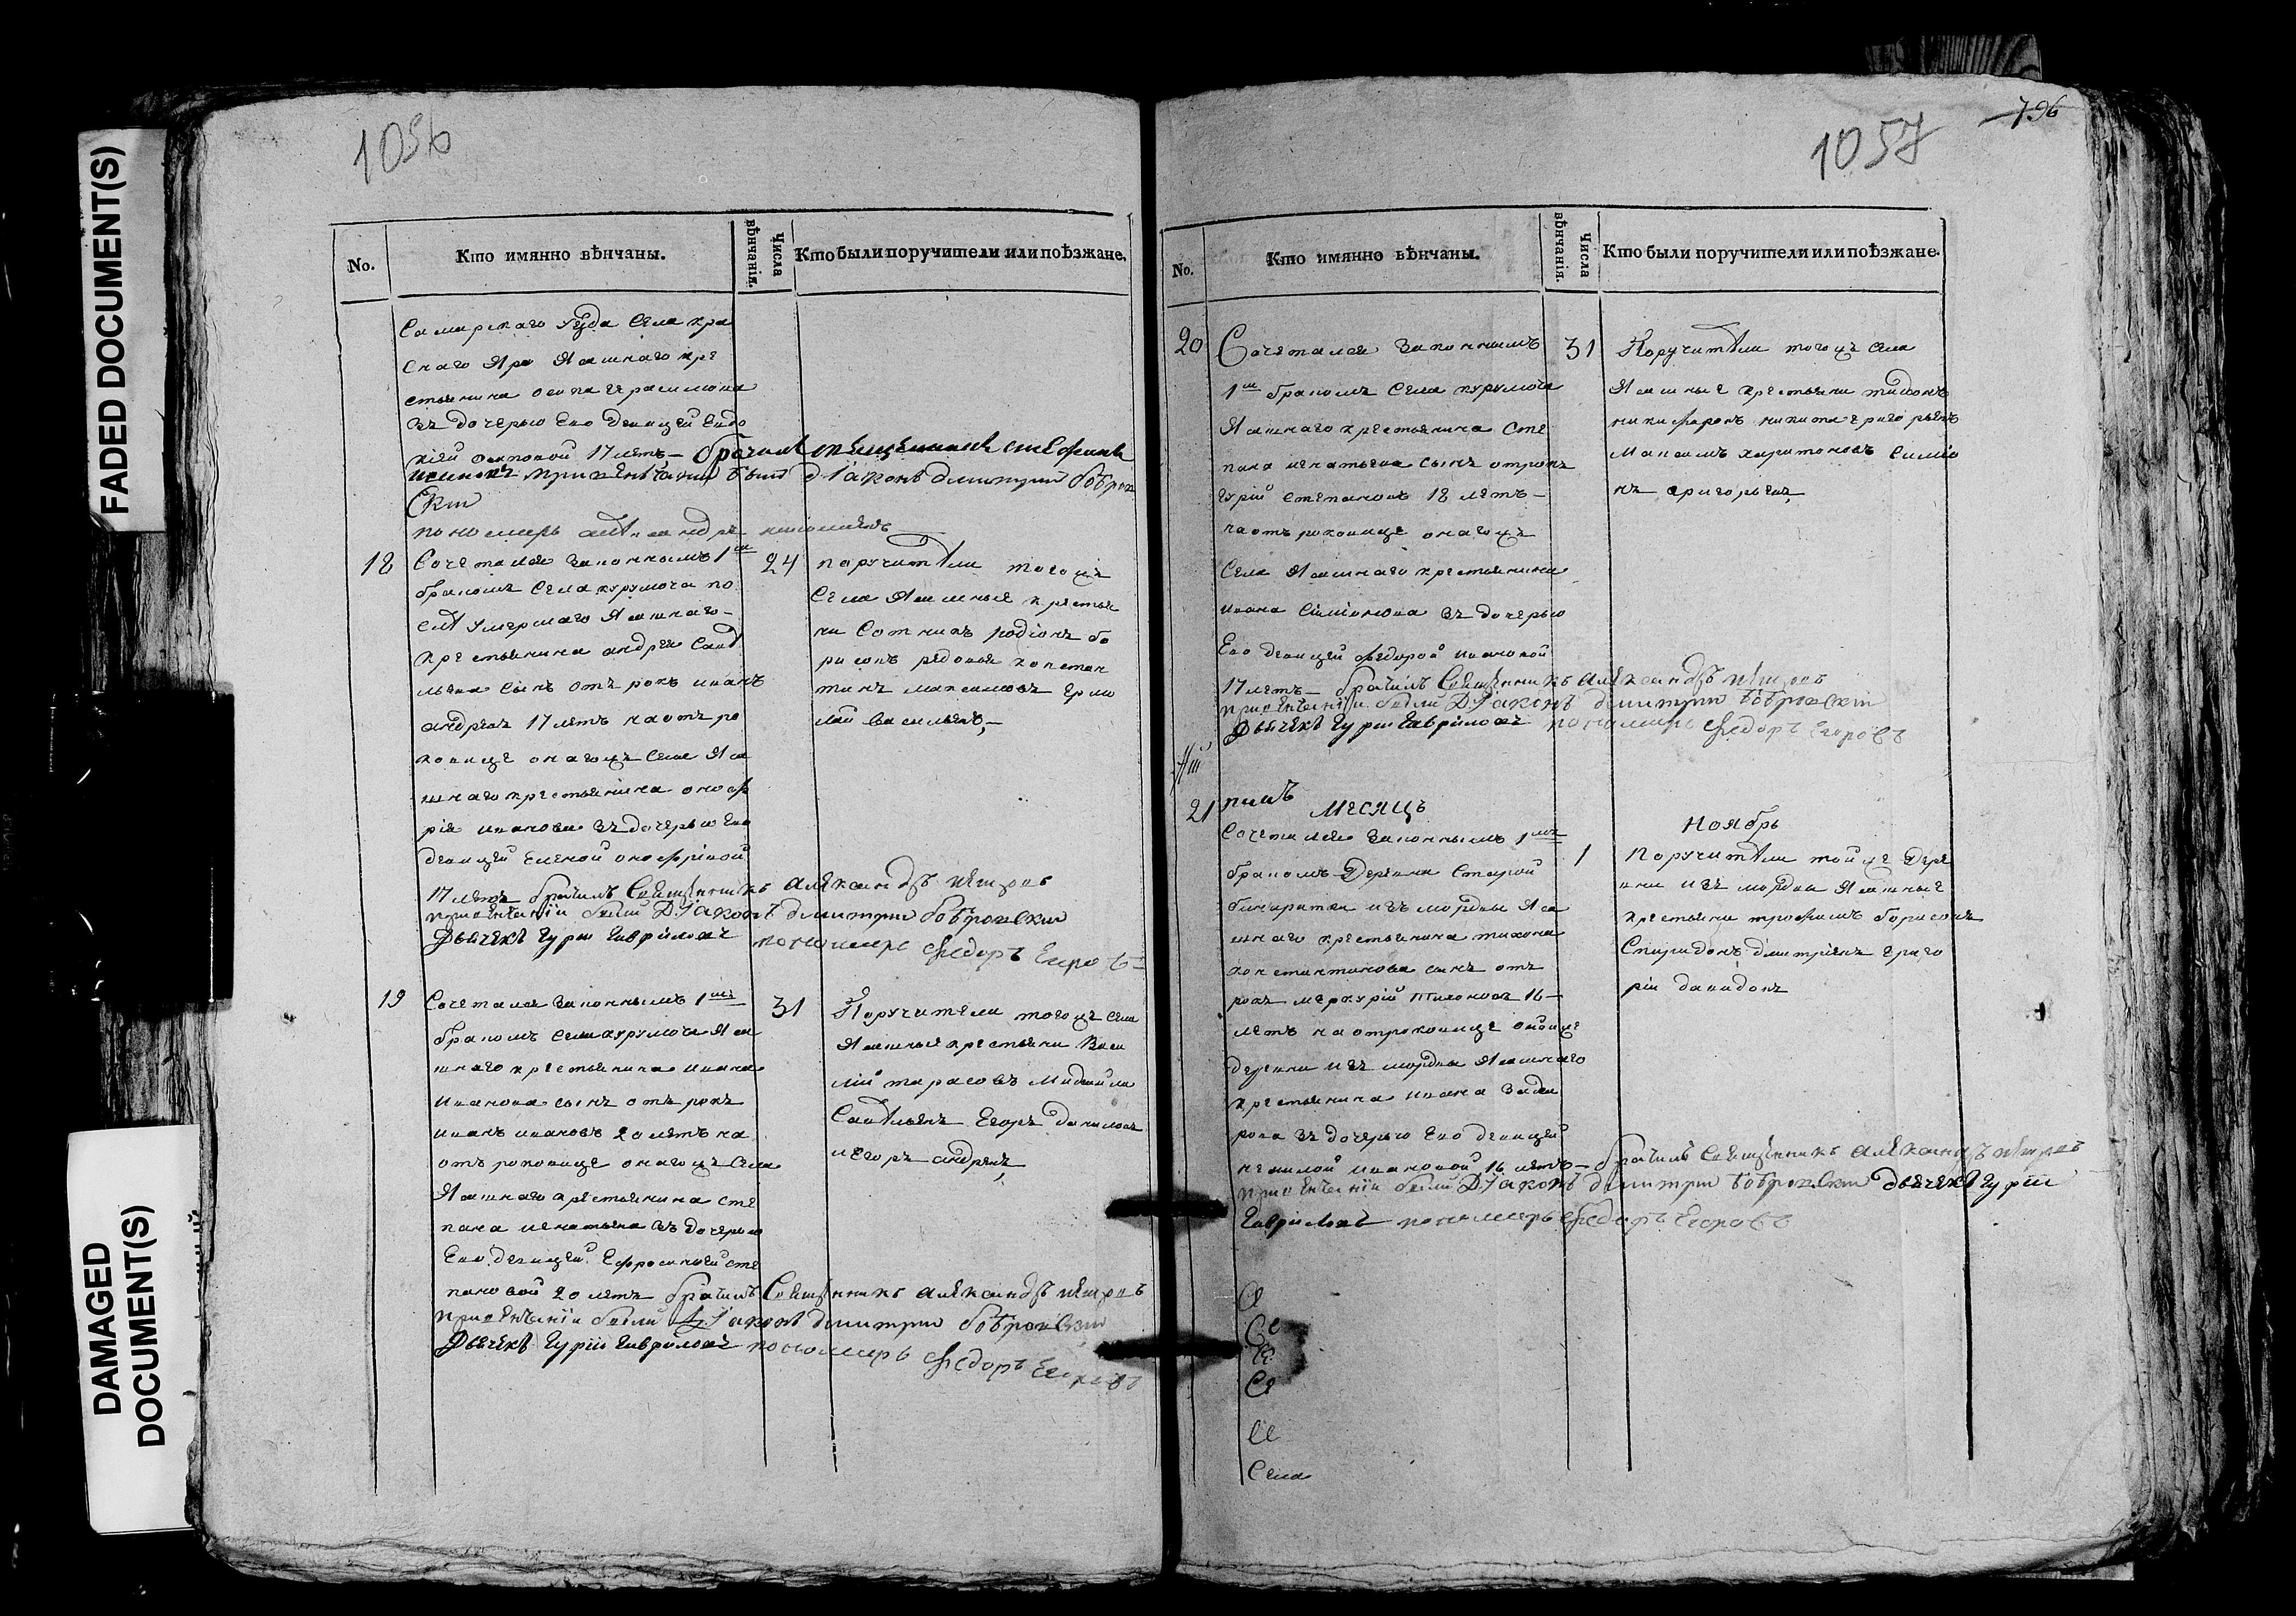 FADED DOCUMENT(S)
DAMAGED
DOCUMENT(S)
1056
No.
Кто имянно вѣнчаны.
Числа
вѣнчанія.
Кто были поручители или поѣзжане.
Самарскаго уезда Села кра
снаго Яра Ясашнаго кре
стьянина осипа герасимова
зъ дочерью Ево девицей Евдо
кіей осиповой 17 летъ —
при венчании былъ діаконъ дмитрий бобров
ски
пономарь
18
Сочетался законнымъ 1 м
бракомъ Села курумоча по
сле умершаго Ясашнаго —
крестьянина андрея Саве
льева сынъ отъ рокъ иванъ
андреевъ 17 летъ на отъ ро
ковице онагожъ Села Яса
шнаго крестьянина оноф
рія иванова зъ дочерью Ево
девицей Еленой онофріевой
17 летъ брачилъ Священникъ Александръ петровъ
при венчании были Діаконъ дмитрий бобровский
Дьячекъ гурий гавриловъ пономарь Федоръ Егоровъ
24
поручители тогожъ
Села Ясашные крестья
ни Сотникъ родіонъ бо
рисовъ рядовые констан
тинъ максимовъ Ермо
лай васильевъ,—
19
Сочетался законнымъ 1 мъ
бракомъ Села курумоча Яса
шнаго крестьянина ивана
иванова сынъ отъ рокъ
иванъ ивановъ 20 летъ на
отъ роковице онагожъ Села
Ясашнаго крестьянина сте
пана игнатьева зъ дочерью
Ево девицей Ефросиньей сте
пановой 20 летъ брачилъ Священникъ Александръ петровъ
при венчании были Діаконъ дмитрий бобровский
Дьячекъ гурий гавриловъ пономарь Федоръ Егоровъ
31
Поручители тогожъ села
Ясашные крестьяни Васи
лий тарасовъ Михайла
Савельевъ Егоръ даниловъ
иЕгоръ андреевъ,
1057
796
No.
Кто имянно вѣнчаны.
Числа
вѣнчанія.
Кто были поручители или поѣзжане.
20
Сочетался законнымъ
1 м бракомъ Села курумоча
Ясашнаго крестьянина Сте
пана игнатьева сынъ отрокъ
гурій степановъ 18 летъ —
на отъ роковице онагожъ
Села Ясашнаго крестьянина
ивана Сіміонова зъ дочерью
Ево девицей федорой ивановой
17 летъ — брачилъ Священникъ Александръ петровъ
при венчании были Діаконъ дмитрий бобровский
Дьячекъ гурий гавриловъ пономарь Федоръ Егоровъ
31
Поручители тогожъ села
Ясашные крестьяни тихонъ
никифоровъ никита григорьевъ
Максимъ харитоновъ Симіо
нъ григорьевъ,
Месяцъ
Ноябрь
21
Сочетался законнымъ 1 мъ
бракомъ Деревни Старой
бинаратки изъ мордвы Яса
шнаго крестьянина тихона
константинова сынъ от
рокъ меркурій тихоновъ 16 —
летъ на отроковице онойже
деревни изъ мордвы Ясашнаго
крестьянина ивана заха
рова зъ дочерью Ево девицей
ненилой ивановой 16 летъ — брачилъ Священникъ Александръ петровъ
при венчании были Діаконъ дмитрий бобровский дьячекъ гурий
гавриловъ пономарь Федоръ Егоровъ
1
Поручители тойже Дере
вни изъ мордвы Ясашные
крестьяни трофимъ борисовъ
Спиридонъ дмитріевъ григо
рій давидовъ
Се
Се
Села